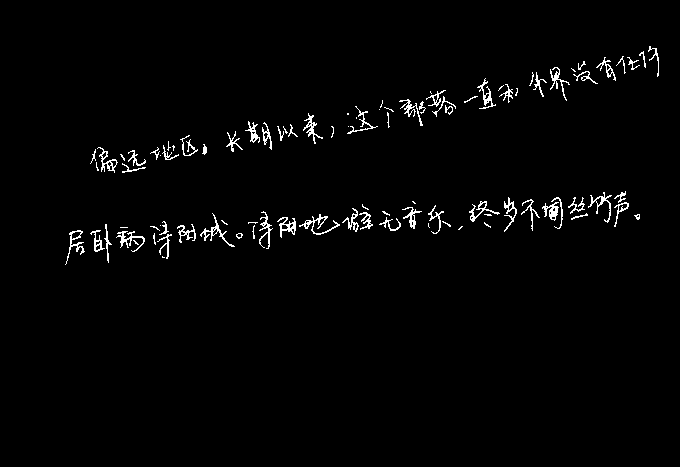 偏远地区。长期以来，这个部落一直和外界没有任何
居卧病浔阳城。浔阳地僻无音乐，终岁不闻丝竹声。